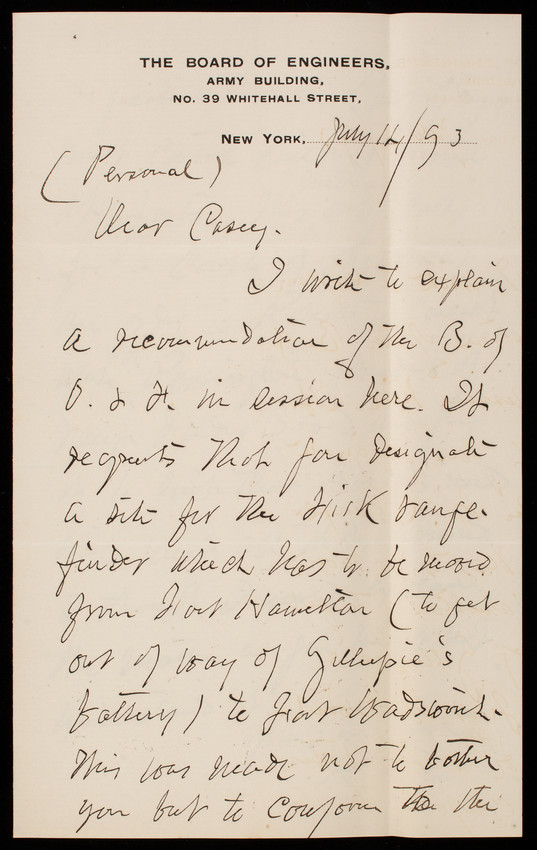 THE BOARD OF ENGINEERS,
ARMY BUILDING,
NO. 39 WHITEHALL STREET,
NEW YORK, July 14/93
(Personal)
Dear Casey.
I write to explain
a recommendation of the B. of
O. & F. in session here. It
requests that you designate
a site for the Fisk range-
finder which has to be moved
from Fort Hamilton (to get
out of way of Gillespie's
battery) to Fort Wadsworth.
This was made not to bother
you but to conform to the